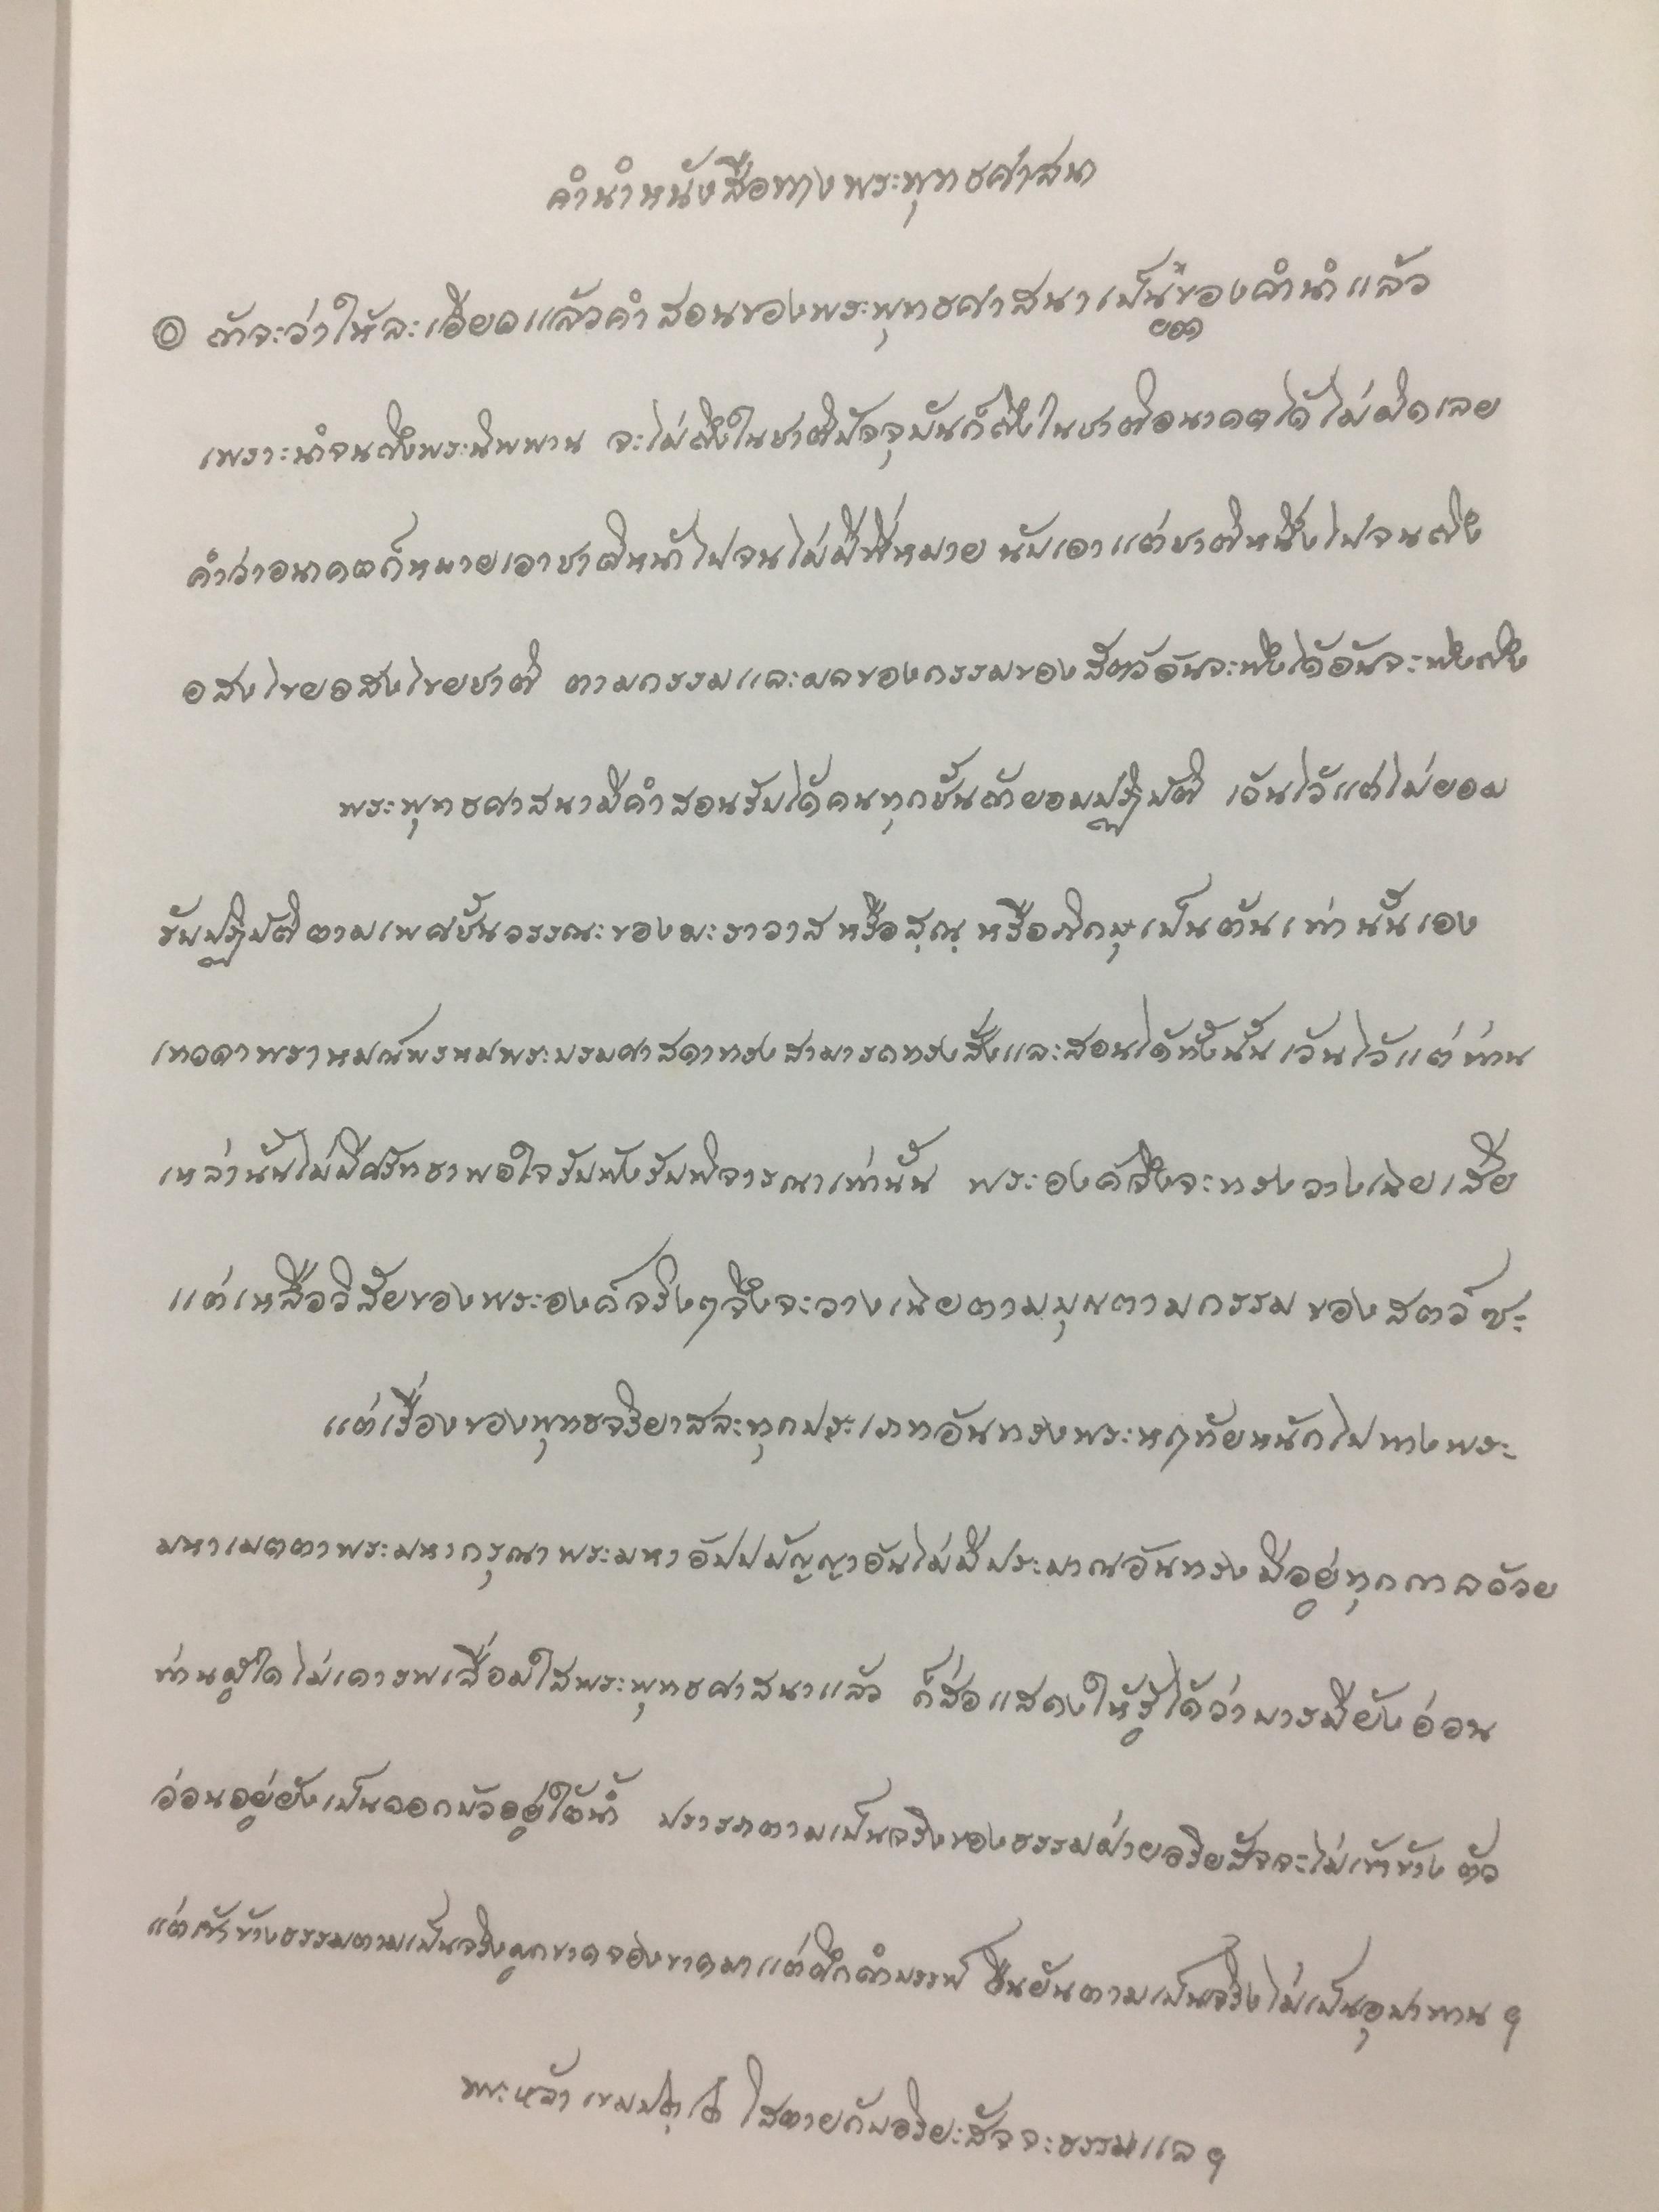 คำนำหนังสือทางพระพุทธศาสนา
๏ ถ้าจะว่าให้ละเอียดแล้วคำสอนของพระพุทธศาสนาเป็นยอดของคำนำแล้ว
เพราะนำจนถึงพระนิพพาน จะไม่ถึงในชาติปัจจุบันก็ถึงในชาติอนาคตได้ไม่ผิดเลย
คำว่าอนาคตก็หมายเอาชาติหน้าไปจนไม่มีที่หมาย นับเอาแต่ชาติหนึ่งไปจนถึง
อสงไขยอสงไขยชาติ ตามกรรมและผลของกรรมของสัตว์อันจะพึงได้อันจะพึงถึง
พระพุทธศาสนามีคำสอนรับได้คนทุกชั้นถ้ายอมปฏิบัติ เว้นไว้แต่ไม่ยอม
รับปฏิบัติตามเพศชั้นวรรณะของฆะราวาส หรือ หรือภิกษุเป็นต้นเท่านั้นเอง
เทวดาพราหมณ์พรหมพระบรมศาสดาทรงสามารถทรงสั่งและสอนได้ทั้งนั้น เว้นไว้แต่ท่าน
เหล่านั้นไม่มีศรัทธาพอใจรับฟังรับพิจารณาเท่านั้น พระองค์จึงจะทรงวางเฉยเสีย
แต่เหลือวิสัยของพระองค์จริงๆจึงจะวางเฉยตามบุญตามกรรมของสตว์ซะ
แต่เรื่องของพุทธจริยาสละทุกประเภทอันทรงพระหฤทัยหนักไปทางพระ
มหาเมตตาพระมหากรุณาพระมหาอัปปมัญญาอันไม่มีประมาณอันทรงมีอยู่ทุกกาลด้วย
ท่านผู้ใดไม่เคารพเลื่อมใสพระพุทธศาสนาแล้ว ก็ส่อแสดงให้รู้ได้ว่าบารมียังอ่อน
อ่อนอยู่ยังเป็นดอกบัวอยู่ใต้น้ำ ปรารภตามเป็นจริงของธรรมฝ่ายอริยสัจจะไม่เข้าข้างตัว
แต่เข้าข้างธรรมตามเป็นจริงผูกขาดจองขาดมาแต่ดึกดำบรรพ์ ยืนยันตามเป็นจริงไม่เป็นอุปาทาน ฯ
พระหล้า เขมปตฺโต ใสตายกับอริยะสัจจะธรรมแล ฯ